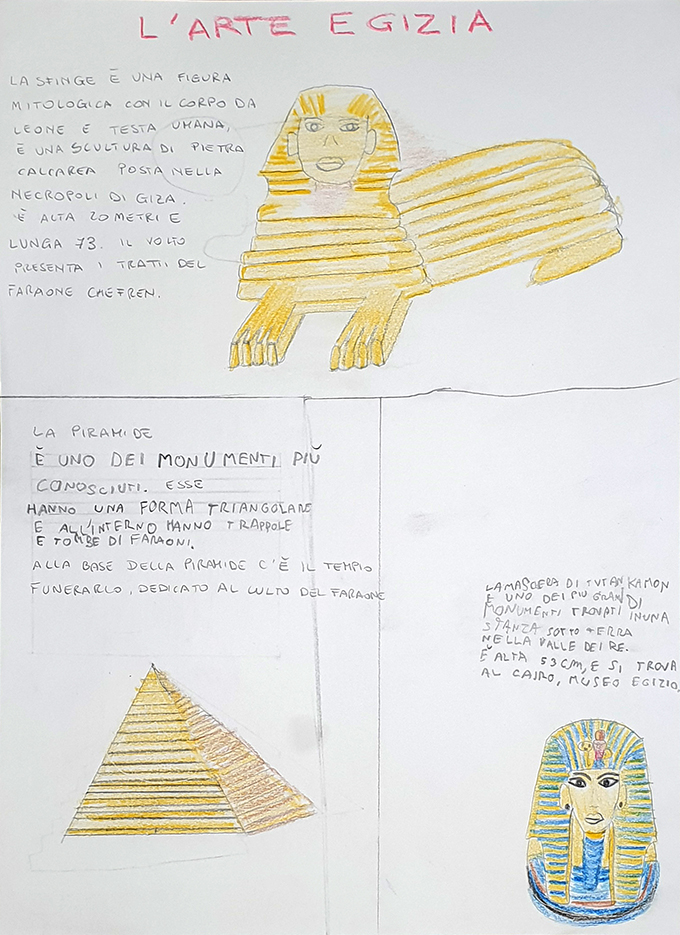 L'ARTE EGIZIA
LA SFINGE È UNA FIGURA
MITOLOGICA CON IL CORPO DA
LEONE E TESTA UMANA,
È UNA SCULTURA DI PIETRA
CALCAREA POSTA NELLA
NECROPOLI DI GIZA.
È ALTA 20 METRI E
LUNGA 73. IL VOLTO
PRESENTA I TRATTI DEL
FARAONE CHEFREN.
LA PIRAMIDE
È UNO DEI MONUMENTI PIÙ
CONOSCIUTI. ESSE
HANNO UNA FORMA TRIANGOLARE
E ALL'INTERNO HANNO TRAPPOLE
E TOMBE DI FARAONI.
ALLA BASE DELLA PIRAMIDE C'È IL TEMPIO
FUNERARIO, DEDICATO AL CULTO DEL FARAONE
LA MASCERA DI TUTANKAMON
E UNO DEI PIÙ GRANDI
MONUMENTI TROVATI IN UNA
STANZA SOTTO TERRA
NELLA VALLE DEI RE.
È ALTA 53 CM, E SI TROVA
AL CAIRO, MUSEO EGIZIO.